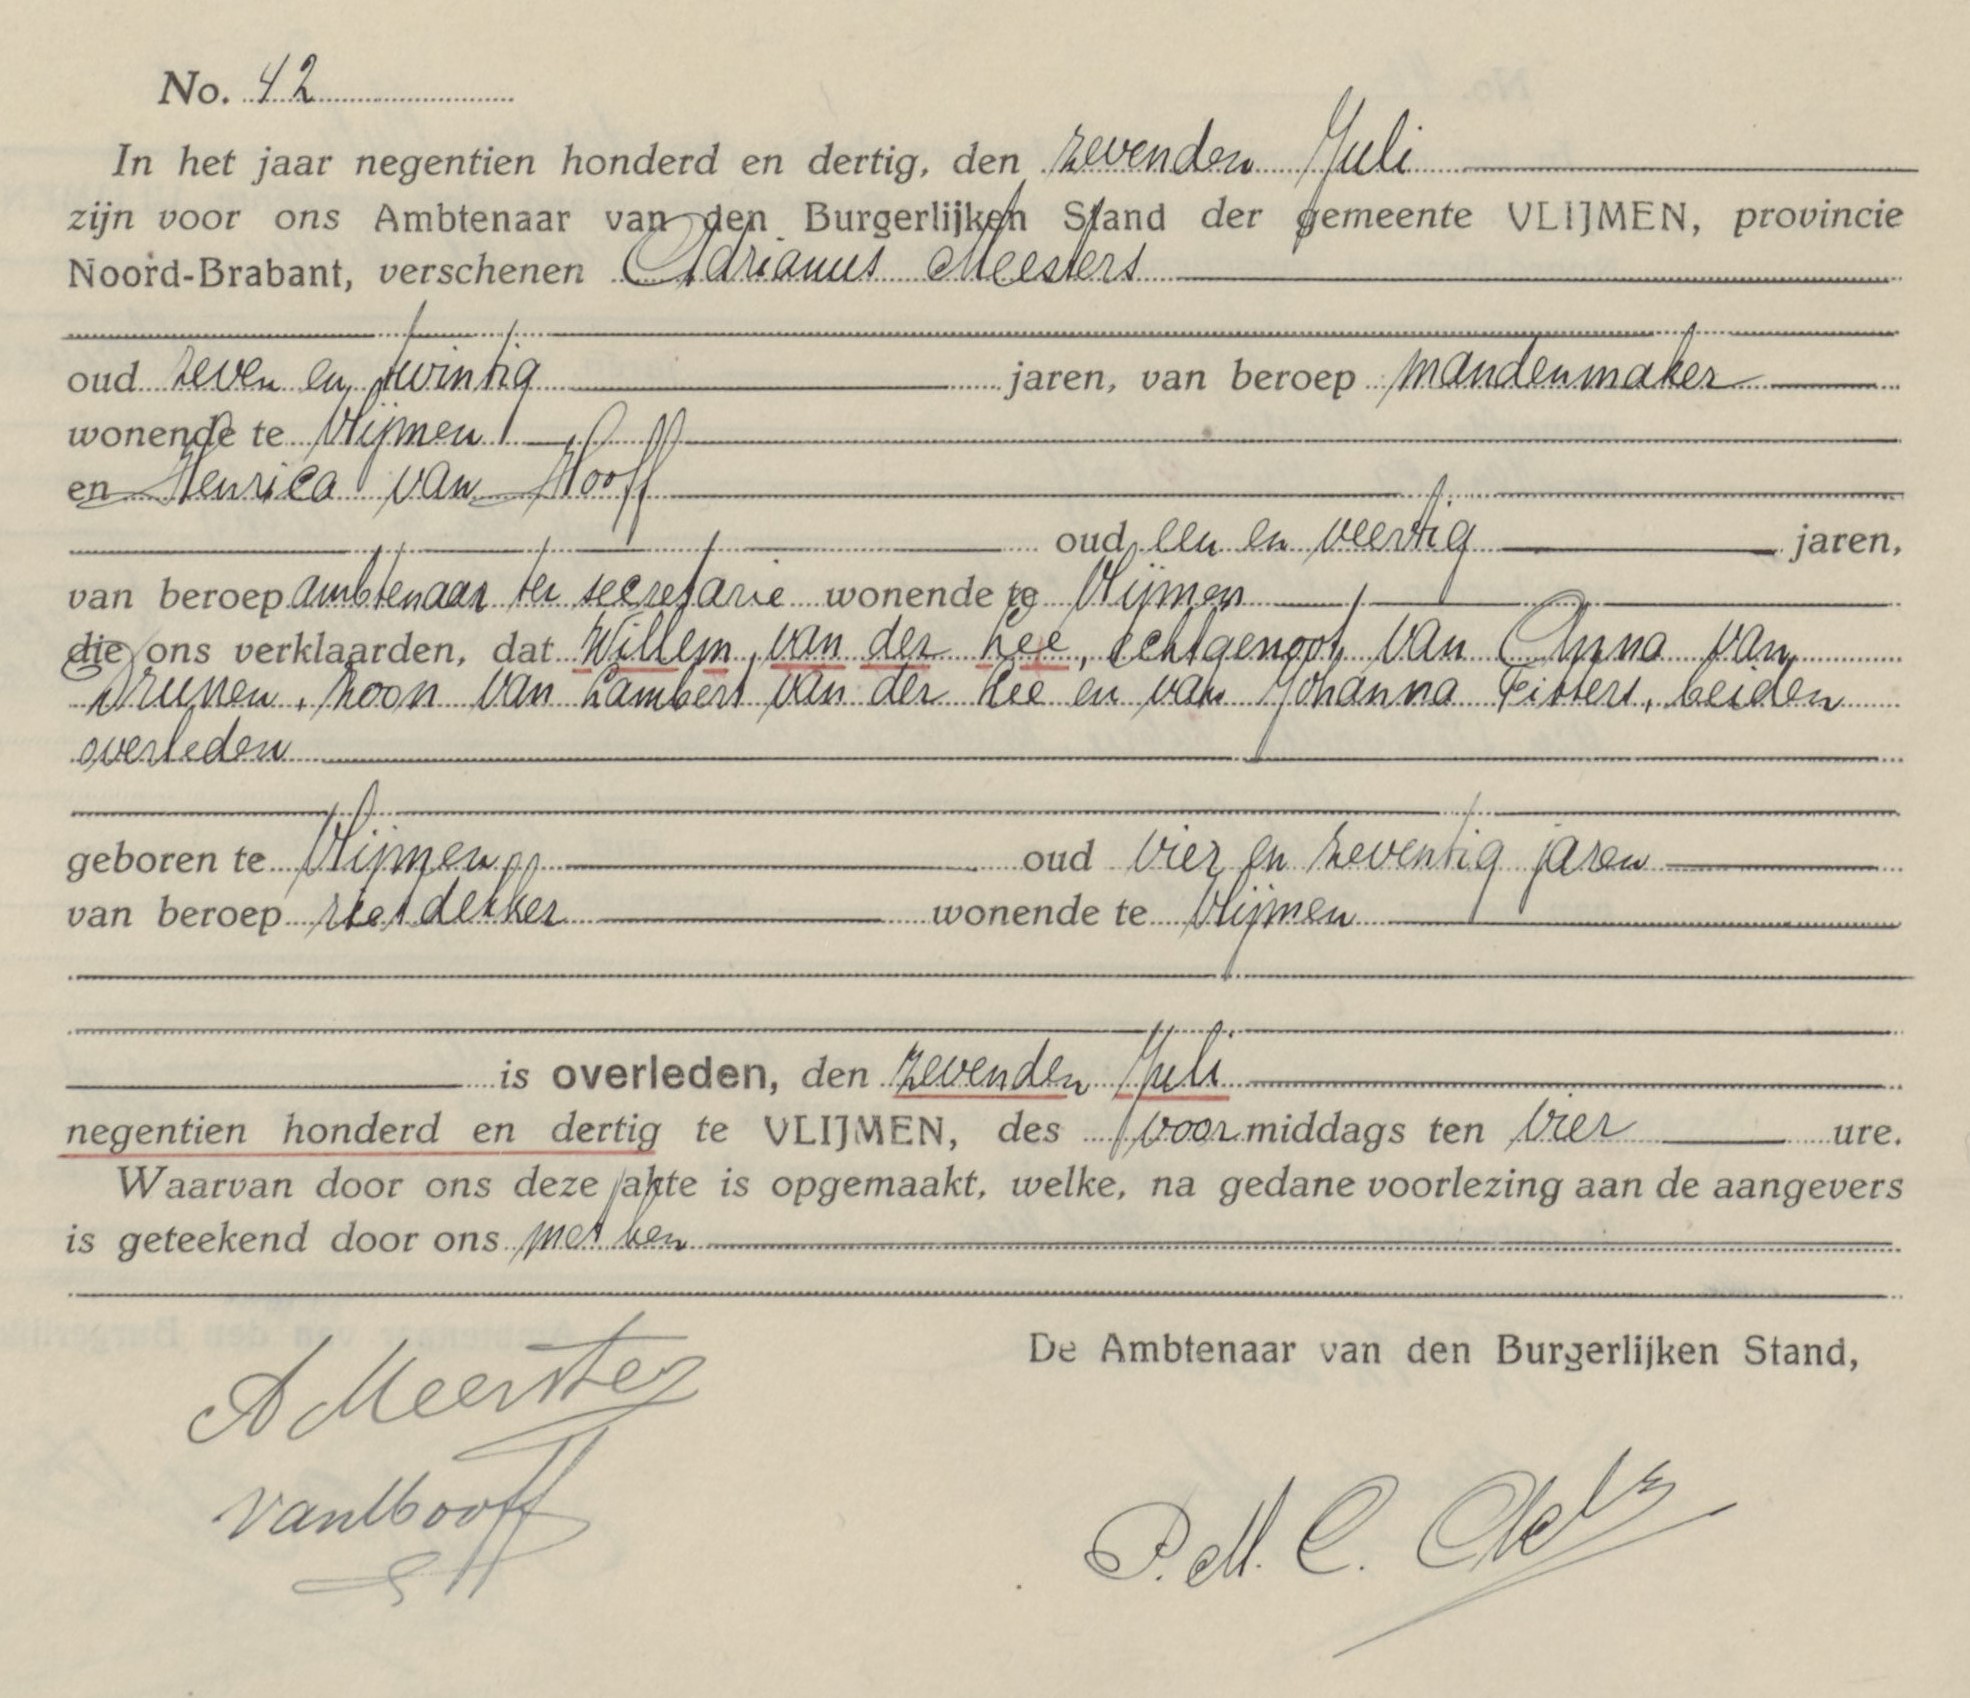 No. 42
In het jaar negentien honderd en dertig, den zevenden Juli
zijn voor ons Ambtenaar van den Burgerlijken Stand der gemeente VLIJMEN, provincie
Noord-Brabant, verschenen Adrianus Meesters
oud zeven en twintig jaren, van beroep mandenmaker
wonende te Vlijmen
en Henrica van Hooff
oud een en veertig jaren,
van beroep ambtenaar ter secretarie wonende te Vlijmen
die ons verklaarden, dat Willem van der Lee, echtgenoot van Anna van
Drunen, zoon van Lambert van der Lee en van Johanna Fitters, beiden
overleden
geboren te Vlijmen oud vier en zeventig jaren
van beroep rietdekker wonende te Vlijmen
is overleden, den zevenden Juli
negentien honderd en dertig te VLIJMEN, des voormiddags ten vier ure.
Waarvan door ons deze akte is opgemaakt, welke, na gedane voorlezing aan de aangevers
is geteekend door ons met hen
De Ambtenaar van den Burgerlijken Stand,
A Meesters
van Hooff
P. M. C.